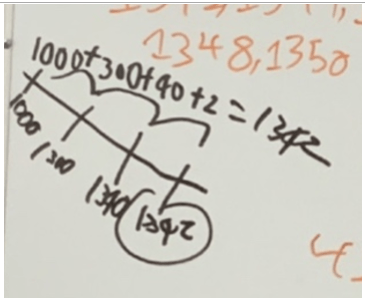 1348,1350
1000+300+40+2=1342
1000
1300
1340
1342